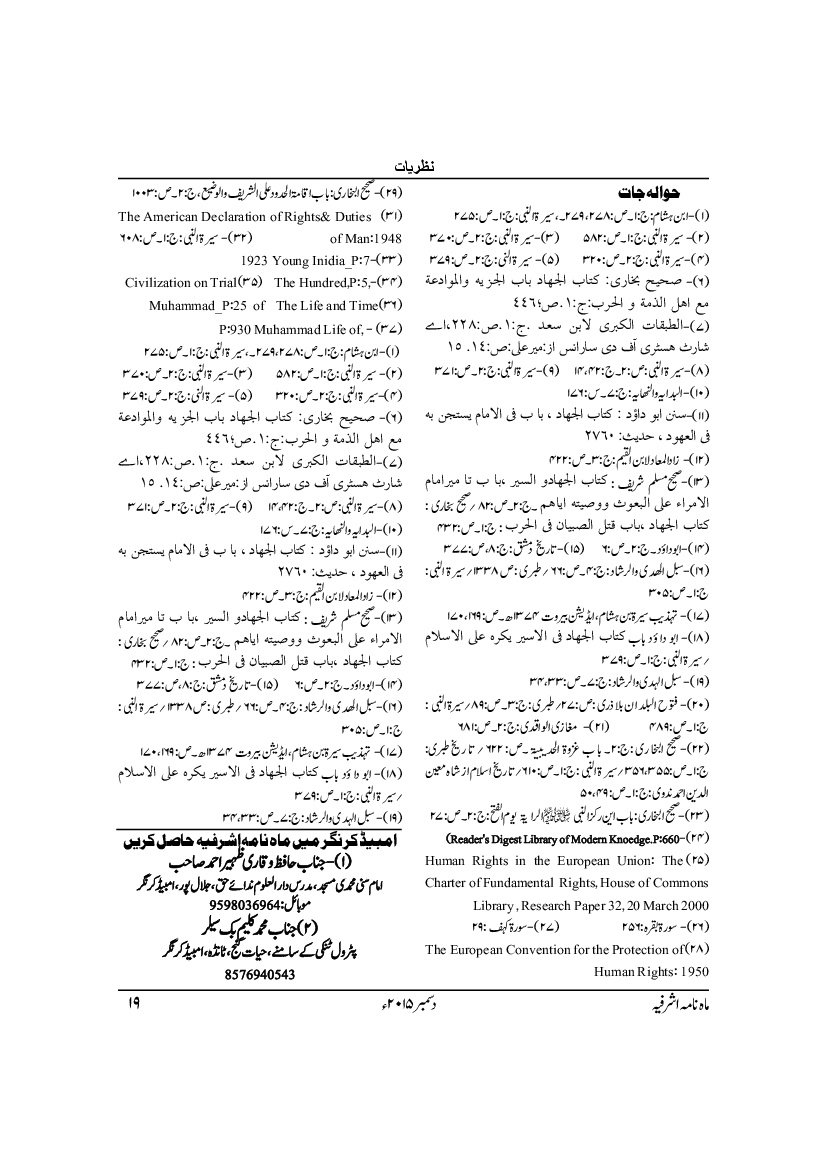 نظریات
حوالہ جات
(۱)-ابن ہشام:ج:۱۔ص:۲۷۸،۲۷۹۔،سیرۃ النبی:ج:۱۔ص:۲۷۵
(۲)- سیرۃ النبی:ج:۱۔ص:۵۸۲ (۳)- سیرۃ النبی:ج:۲۔ص:۳۷۰
(۴)-سیرۃ النبی:ج:۲۔ص:۳۲۰ (۵)- سیرۃ النبی:ج:۲۔ص:۳۷۹
(۶)- صحیح بخاری: کتاب الجهاد باب الجزیه والموادعة
مع اهل الذمة و الحرب:ج:۱.ص؛٤٤٦
(۷)-الطبقات الکبری لابن سعد .ج:۱.ص:۲۲۸،اے
شارٹ ہسٹری آف دی سارانس از:میرعلی:ص:١٤. ١٥
(۸)-سیرۃ النبی:ص:۲۔ج:۱۴،۴۲ (۹)- سیرۃ النبی:ج:۲۔ص:۳۷۱
(۱۰)-البدایه والنهایه:ج:۷۔س:۱۷۶
(۱۱)-سنن ابو داؤد : کتاب الجهاد ، با ب فی الامام یستجن به
فی العهود ، حدیث: ۲۷۶۰
(۱۲)- زادالمعادلابن القیم:ج:۳۔ص:۴۲۲
(۱۳)-صحیح مسلم شریف : کتاب الجهادو السیر ،با ب تا میرامام
الامراء علی البعوث ووصیته ایاهم ۔ج:۲۔ص:۸۲/صحیح بخاری :
کتاب الجهاد ،باب قتل الصبیان فی الحرب : ج:۱۔ص:۴۳۲
(۱۴)-ابوداؤد۔ج:۲۔ص:۶ (۱۵)- تاریخ دمشق:ج:۸،ص:۳۷۷
(۱۶)-سبل الهدی والرشاد:ج:۴۔ص:۶۶/طبری:ص۱۳۳۸/سیرۃ النبی:
ج:۱۔ص:۳۰۵
(۱۷)- تہذیب سیرۃ بن ہشام،ایڈیشن بیروت ۱۳۷۴ھ۔ص:۱۶۹،۱۷۰
(۱۸)- ابو داؤد باب کتاب الجهاد فی الاسیر یکره علی الاسلام
/سیرۃ النبی:ج:۱۔ص:۳۷۹
(۱۹)- سبل الہدی والرشاد:ج:۷۔ص:۳۴،۳۳
(۲۰)- فتوح البلدان بلاذری:ص:۲۷/طبری:ج:۳۔ص:۸۹/سیرۃ النبی :
ج:۱۔ص:۴۸۹ (۲۱)- مغازی الواقدی:ج:۲۔ص:۶۸۱
(۲۲)-صحیح البخاری:ج:۲۔ باب غزوۃ الحدیبیۃ ۔ص:۶۲۲/ تاریخ طبری:
ج:۱۔ص:۳۵۶،۳۵۵/سیرۃ النبی:ج:۱۔ص:۶۱۰/تاریخ اسلام از شاہ معین
الدین احمد ندوی:ج:۱۔ص:۵۰،۴۹
(۲۳)-صحیح البخاری:باب این رکز النبی ﷺ الرایۃ یوم الفتح:ج:۲۔ص:۲۷
(۲۴)-Reader's Digest Library of Modern Knoedge.P:660)
(۲۵) Human Rights in the European Union: The
Charter of Fundamental Rights, House of Commons
Library , Research Paper 32, 20 March 2000
(۲۶)- سورۃ بقرہ:۲۵۶ (۲۷)-سورۃ کہف :۲۹
(۲۸)The European Convention for the Protection of
Human Rights: 1950
(۲۹)-صحیح البخاری:باب اقامۃ الحدود علی الشریف والوضیع،ج:۲۔ص:۱۰۰۳
(۳۱) The American Declaration of Rights& Duties
of Man:1948 (۳۲)- سیرۃ النبی:ج:۱۔ص:۶۰۸
(۳۳)-1923 Young Inidia_P:7
(۳۴)-The Hundred,P:5, (۳۵)Civilization on Trial
(۳۶)Muhammad_P:25 of The Life and Time
(۳۷) - P:930 Muhammad Life of,
(۱)-ابن ہشام:ج:۱۔ص:۲۷۸،۲۷۹۔،سیرۃ النبی:ج:۱۔ص:۲۷۵
(۲)- سیرۃ النبی:ج:۱۔ص:۵۸۲ (۳)- سیرۃ النبی:ج:۲۔ص:۳۷۰
(۴)-سیرۃ النبی:ج:۲۔ص:۳۲۰ (۵)- سیرۃ النبی:ج:۲۔ص:۳۷۹
(۶)- صحیح بخاری: کتاب الجهاد باب الجزیه والموادعة
مع اهل الذمة و الحرب:ج:۱.ص؛٤٤٦
(۷)-الطبقات الکبری لابن سعد .ج:۱.ص:۲۲۸،اے
شارٹ ہسٹری آف دی سارانس از:میرعلی:ص:١٤. ١٥
(۸)-سیرۃ النبی:ص:۲۔ج:۱۴،۴۲ (۹)- سیرۃ النبی:ج:۲۔ص:۳۷۱
(۱۰)-البدایه والنهایه:ج:۷۔س:۱۷۶
(۱۱)-سنن ابو داؤد : کتاب الجهاد ، با ب فی الامام یستجن به
فی العهود ، حدیث: ۲۷۶۰
(۱۲)- زادالمعادلابن القیم:ج:۳۔ص:۴۲۲
(۱۳)-صحیح مسلم شریف : کتاب الجهادو السیر ،با ب تا میرامام
الامراء علی البعوث ووصیته ایاهم ۔ج:۲۔ص:۸۲/صحیح بخاری :
کتاب الجهاد ،باب قتل الصبیان فی الحرب : ج:۱۔ص:۴۳۲
(۱۴)-ابوداؤد۔ج:۲۔ص:۶ (۱۵)- تاریخ دمشق:ج:۸،ص:۳۷۷
(۱۶)-سبل الهدی والرشاد:ج:۴۔ص:۶۶/طبری:ص۱۳۳۸/سیرۃ النبی:
ج:۱۔ص:۳۰۵
(۱۷)- تہذیب سیرۃ بن ہشام،ایڈیشن بیروت ۱۳۷۴ھ۔ص:۱۶۹،۱۷۰
(۱۸)- ابو داؤد باب کتاب الجهاد فی الاسیر یکره علی الاسلام
/سیرۃ النبی:ج:۱۔ص:۳۷۹
(۱۹)- سبل الہدی والرشاد:ج:۷۔ص:۳۴،۳۳
امبیڈکر نگر میں ماہ نامہ اشرفیہ حاصل کریں
(۱)-جناب حافظ و قاری ظہیر احمد صاحب
امام سنی محمدی مسجد،مدرس دارالعلوم ندائے حق،جلال پور،امبیڈکر نگر
موبائل:9598036964
(۲)جناب محمد کلیم بک سیلر
پٹرول ٹنکی کے سامنے،حیات گنج،ٹانڈہ،امبیڈکر نگر
8576940543
ماہ نامہ اشرفیہ
دسمبر ۲۰۱۵ء
۱۹